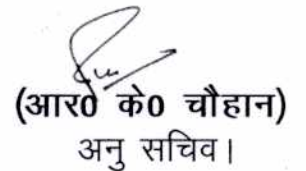 (आर0 के0 चौहान)
अनु सचिव।